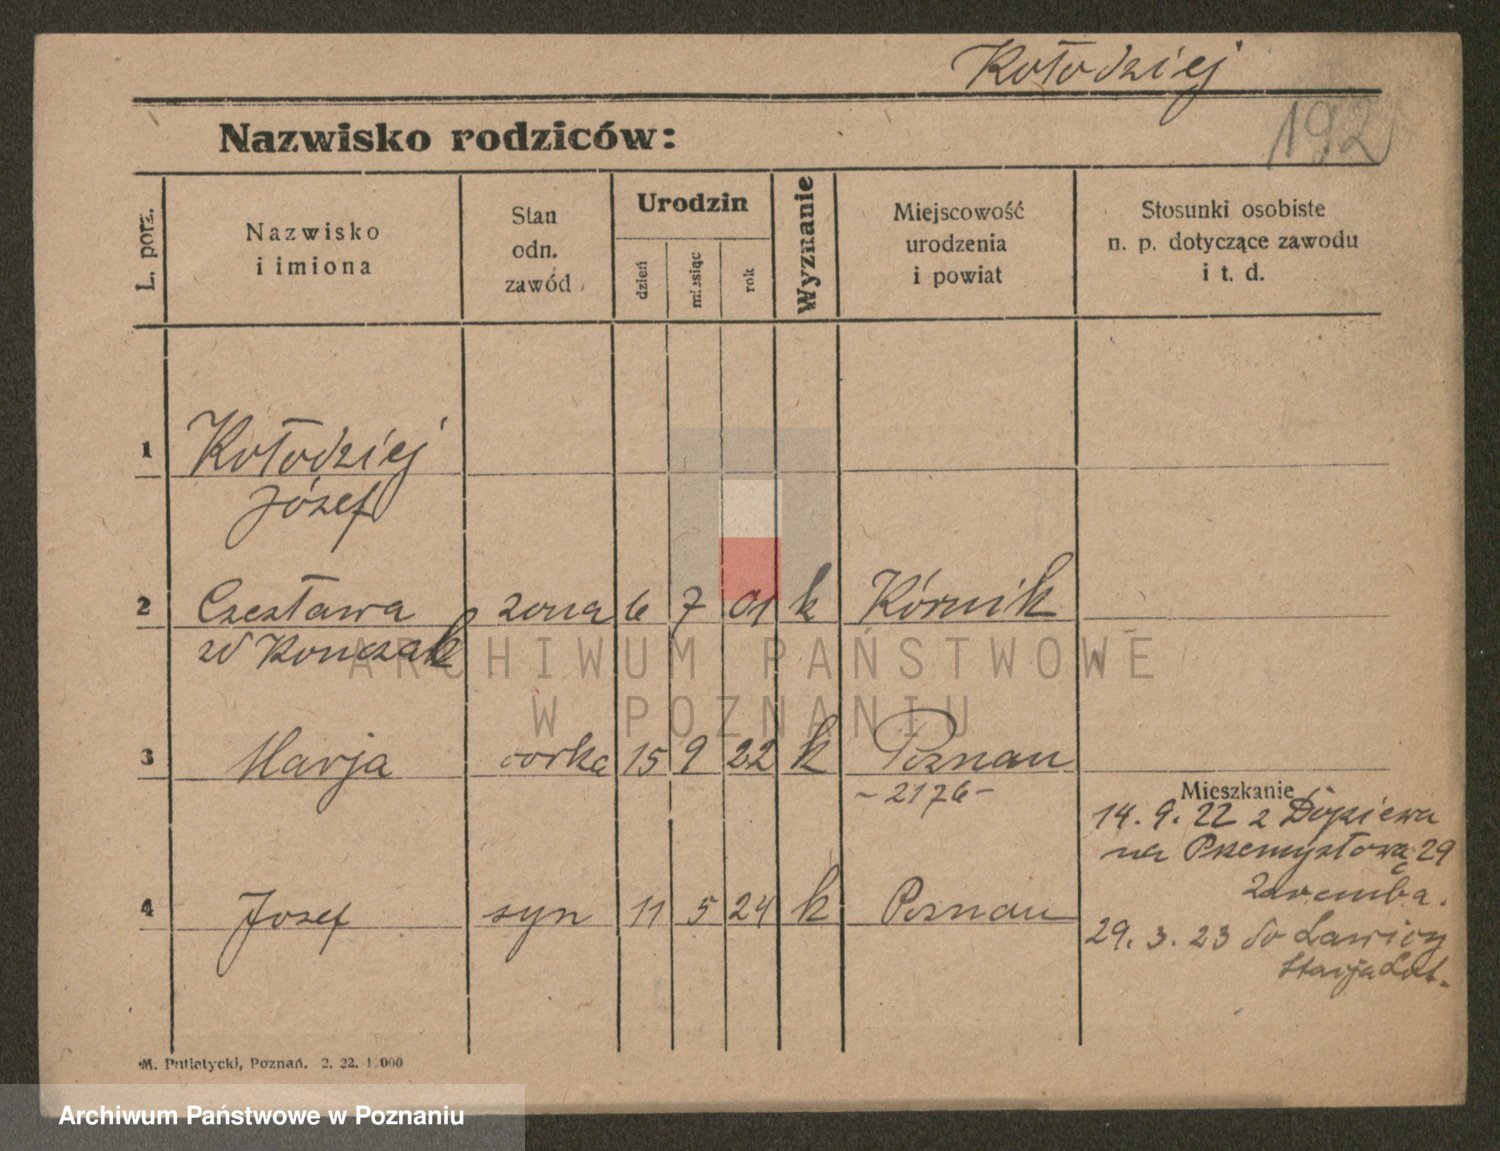 Kołodziej
192
Nazwisko rodziców:
L. porz.
Nazwisko
i imiona
Stan
odn.
zawód
Urodzin
dzień
miesiąc
rok
Wyznanie
Miejscowość
urodzenia
i powiat
Stosunki osobiste
n. p. dotyczące zawodu
i t. d.
1 Kołodziej
Józef
2 Czesława żona 6 7 01 k Kórnik
zd Konczak
3 Marja corka 15 9 22 k Poznan
- 2176 -
Mieszkanie
14. 9. 22 z Dopiewa
na Przemysłową 29
Zaremba.
4 Josef syn 11 5 24 k Poznan
29. 3. 23 do Ławicy
Stacja Lot.
M. Putiatycki, Poznań. 2. 22. 1.000
ARCHIWUM PAŃSTWOWE
W POZNANIU
Archiwum Państwowe w Poznaniu